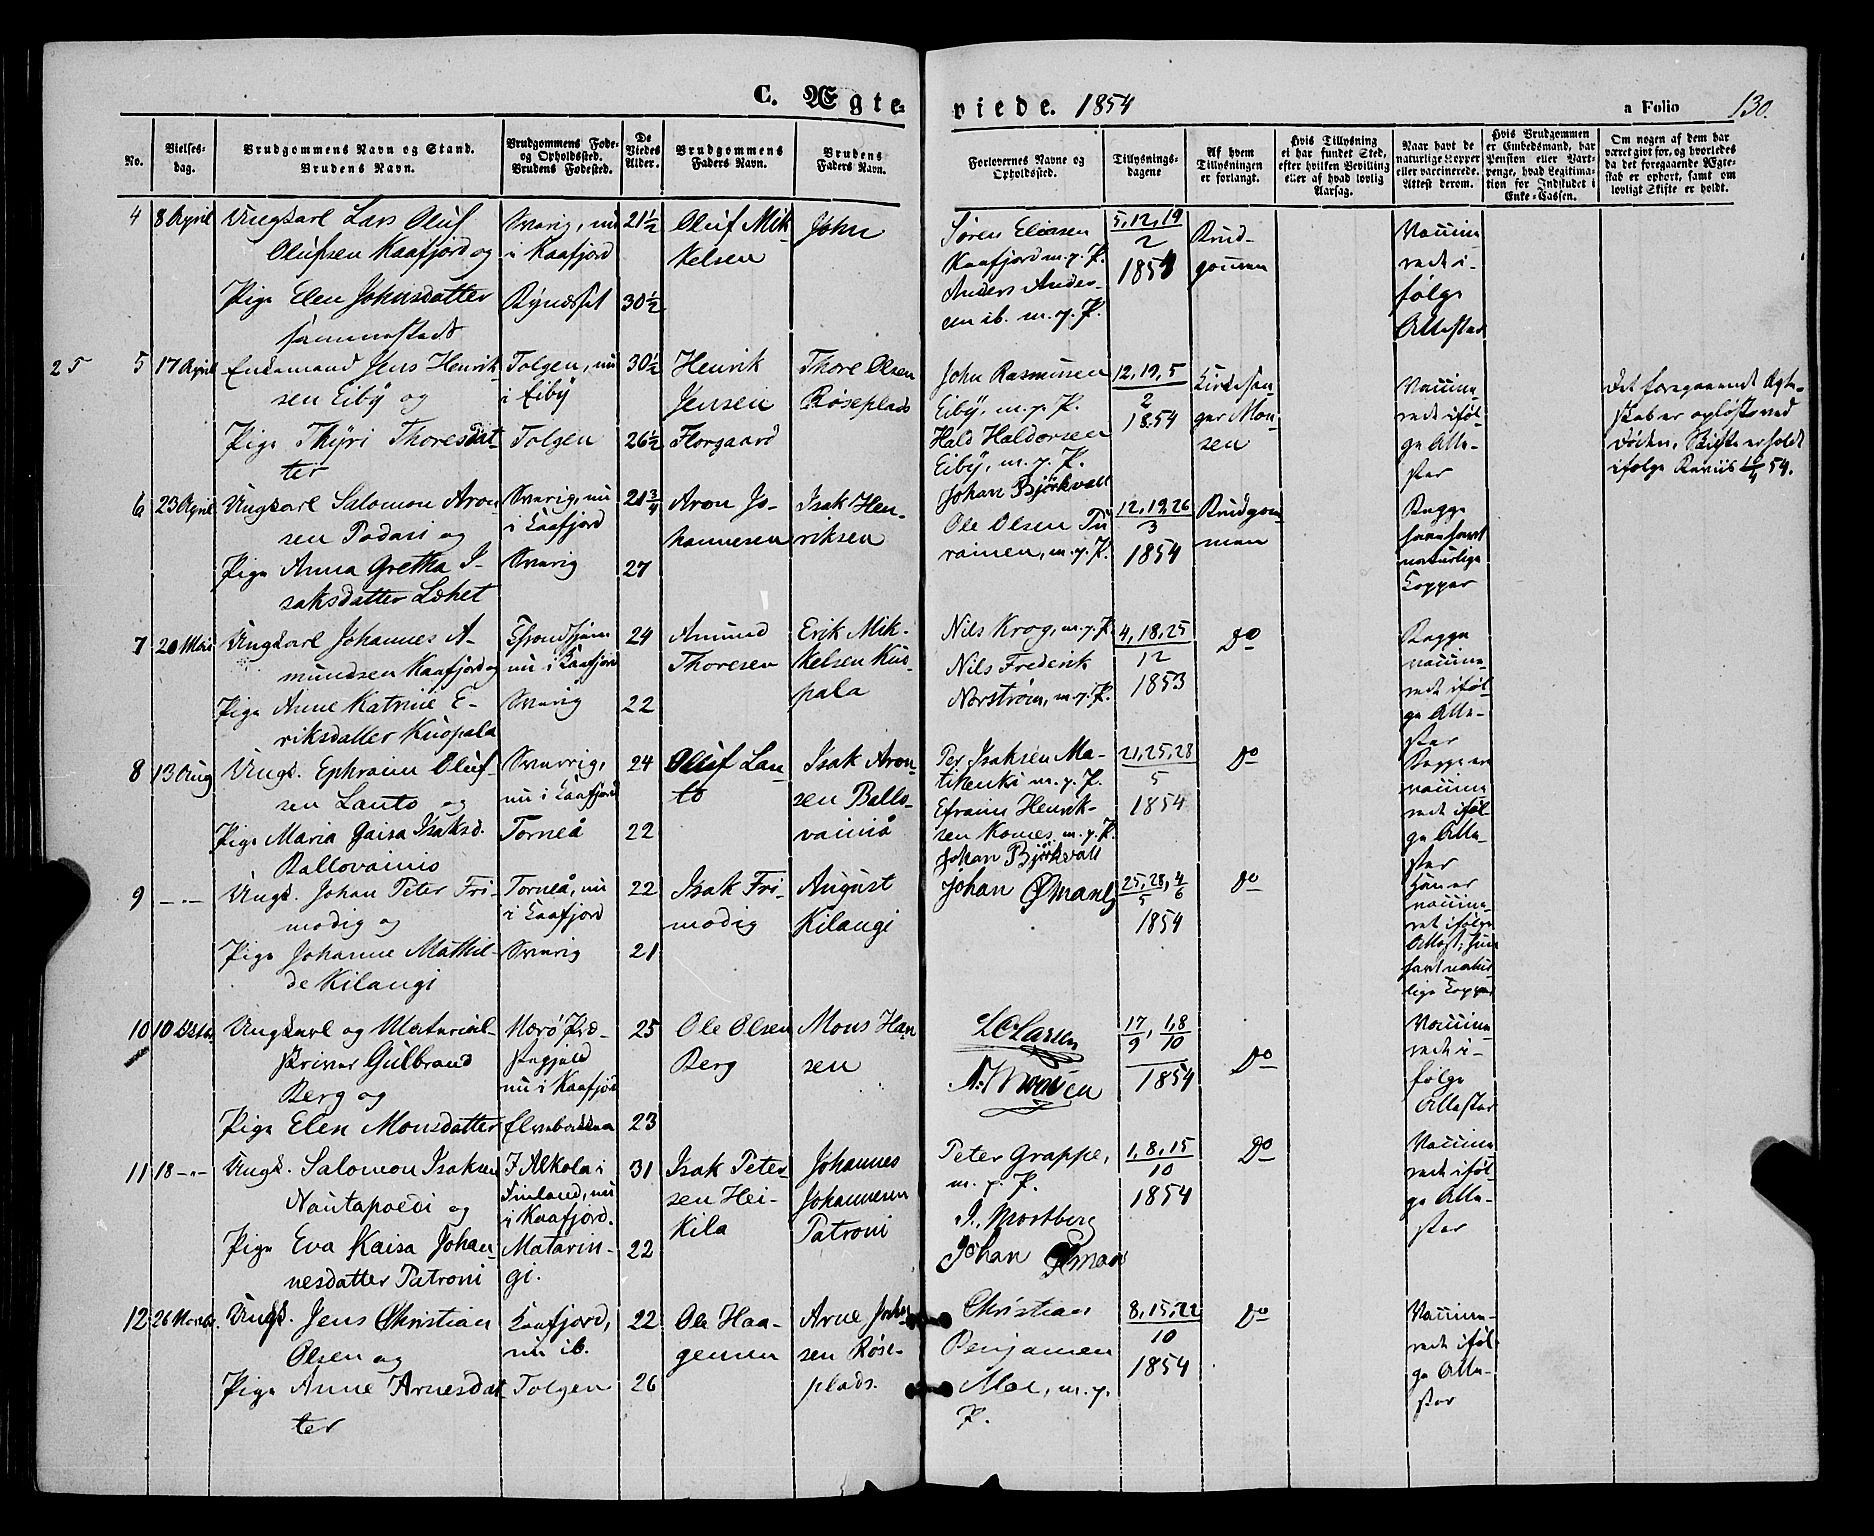 C. Ægte-
viede. 1854
a Folio 130.
No.
Vielses-
dag.
Brudgommens Navn og Stand.
Brudens Navn.
Brudgommens Føde-
og Opholdssted.
Brudens Fødested.
De
Viedes
Alder.
Brudgommens
Faders Navn.
Brudens
Faders Navn.
Forlovernes Navne og
Opholdssted.
Tillysnings-
dagene
Af hvem
Tillysningen
er forlangt.
Hvis Tillysning
ei har fundet Sted,
efter hvilken Bevilling
eller af hvad lovlig
Aarsag.
Naar havt de
naturlige Kopper
eller vaccinerede.
Attest derom.
Hvis Brudgommen
er Embedsmand, har
Pension eller Vart-
penge, hvad Legitima-
tion for Indskudet i
Enke-Cassen.
Om nogen af dem har
været gift før, og hvorledes
da det foregaaende Ægte-
skab er ophørt, samt om
lovligt Skifte er holdt.
4 8 April
Ungkarl Lars Oluf
Olufsen Kaafjord og
Pige Elen Johnsdatter
sammesteds
Sverig, nu
i Kaafjord
21½
30½
Oluf Mik-
kelsen
John
Søren Eliasen
Kaafjord m. p. P.
Anders Ander-
sen ib. m. p. P.
5, 12, 19
2
1854
Brud-
gommen
Vaccine-
rede i-
følge
Attester
25
5 17 April
Enkemand Jens Henrik-
sen Eiby og
Pige Thyri Thoresdat-
ter
Tolgen, nu
i Eiby
Tolgen
30½
26½
Henrik
Jensen
Florgaard
Thore Olsen
Røseplads
John Rasmusen
Eiby, m. p. P.
Hald Haldorsen
Eiby, m. p. P.
12, 19, 5
2
1854
Kirkesan-
ger Mon-
sen
Vaccine-
rede iføl-
ge Atte-
ster
Det foregaaende Ægte-
skab er opløst ved
Døden, Skifte er holdt
ifølge Beviis
6 23 April
Ungkarl Salomon Aron-
sen Padasi og
Pige Anna Gretha I-
saksdatter Lehet
Sverig, nu
i Kaafjord
Sverig
21¾
27
Aron Jo-
hannesen
Isak Hen-
riksen
Johan Björkvall
Ole Olsen Tu
rainen, m. p. P.
12, 19, 26
3
1854
Brudgom-
men
Begge
have havt
naturlige
Kopper
7 20 Mai
Ungkarl Johannes A-
mundsen Kaafjord og
Pige Anne Katrine E-
riksdatter Kuopala
Throndhjem
nu i Kaafjord
Sverig
24
22
Amund
Thoresen
Erik Mik-
kelsen Kuo-
pala
Nils Krog, m. p. P.
Nils Frederik
Norstrøm, m. p. P.
4, 18, 25
12
1853
Do
Begge
vaccine-
rede iføl-
ge Atte-
ster
8 13 Aug
Ungk. Ephraim Oluf-
sen Lanto og
Pige Maria Gaisa Isaksd.
Ballovainio
Sverrig,
nu i Kaafjord
Torneå
24
22
Oluf Lan-
to
Isak Aron-
sen Ballo-
vainiå
Per Isaksen Ma-
tikenki m. p. P.
Efraim Henrik-
sen Komes, m. p. P.
Johan Björkvall
21, 25, 28
5
1854
Do
Begge ere
vaccine-
rede iføl-
ge Atte-
ster
9 -"-
Ungk. Johan Peter Fri-
modig og
Pige Johanne Mathil-
de Kilangi
Torneå, nu
i Kaafjord
Sverig
22
21
Isak Fri-
modig
August
Kilangi
Johan Ømanly
25, 28, 4
5 6
1854
Do
Han er
vaccine-
ret ifølge
Attest; hun
havt natur-
lige Kopper
10 10 Octbr.
Ungkarl og Material-
skriver Gulbrand
Berg og
Pige Elen Monsdatter
Norø Præ-
stegjeld
nu i Kaafjord
Elvebakken
25
23
Ole Olsen
Berg
Mons Han-
sen
L O Larsen
A. Monsen
17, 1, 8
9 10
1854
Do
Vaccine-
rede i-
følge
Attester
11 18 -"-
Ungk. Salomon Isaksen
Nautapoedi og
Pige Eva Kaisa Johan-
nesdatter Patroni
I Alkola i
Finland, nu
i Kaafjord.
Matarin-
gi.
31
22
Isak Peter-
sen Hei-
kila
Johannes
Johannesen
Patroni
Peter Grappe,
m. p. P.
I. Mostberg
Johan Øman
1, 8, 15
10
1854
Do
Vaccine-
rede iføl-
ge Atte-
ster
12 26 Novbr.
Ungk. Jens Christian
Olsen og
Pige Anne Arnesdat
ter
Kaafjord,
nu ib.
Tolgen
22
26
Ole Haa-
gensen
Arne John-
sen Røse-
plads.
Christian
Benjamen
Moe, m. p.
P.
8, 15, 22
10
1854
Do
Vaccine-
rede iføl-
ge Atte-
ster